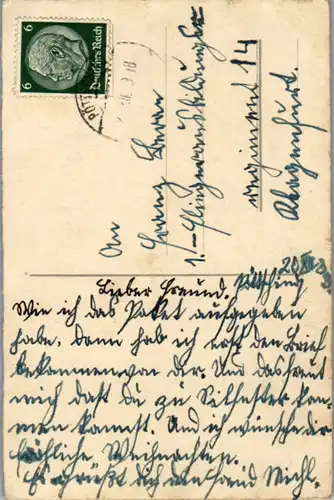 6 Deutsches Reich 6
An
Franz
1. Fliegerausbildungs
regiment 14
Klagenfurt.
Pöttsching 20. XII.
Lieber Freund.
Wie ich das Paket aufgegeben
habe, dann hab ich erst den Brief
bekommen von dir. Und das freut
mich daß du zu Silfester kom-
men kannst. Und ich wünsche dir
fröhliche Weihnachten.
Es grüßt dich dein Freund Michl.